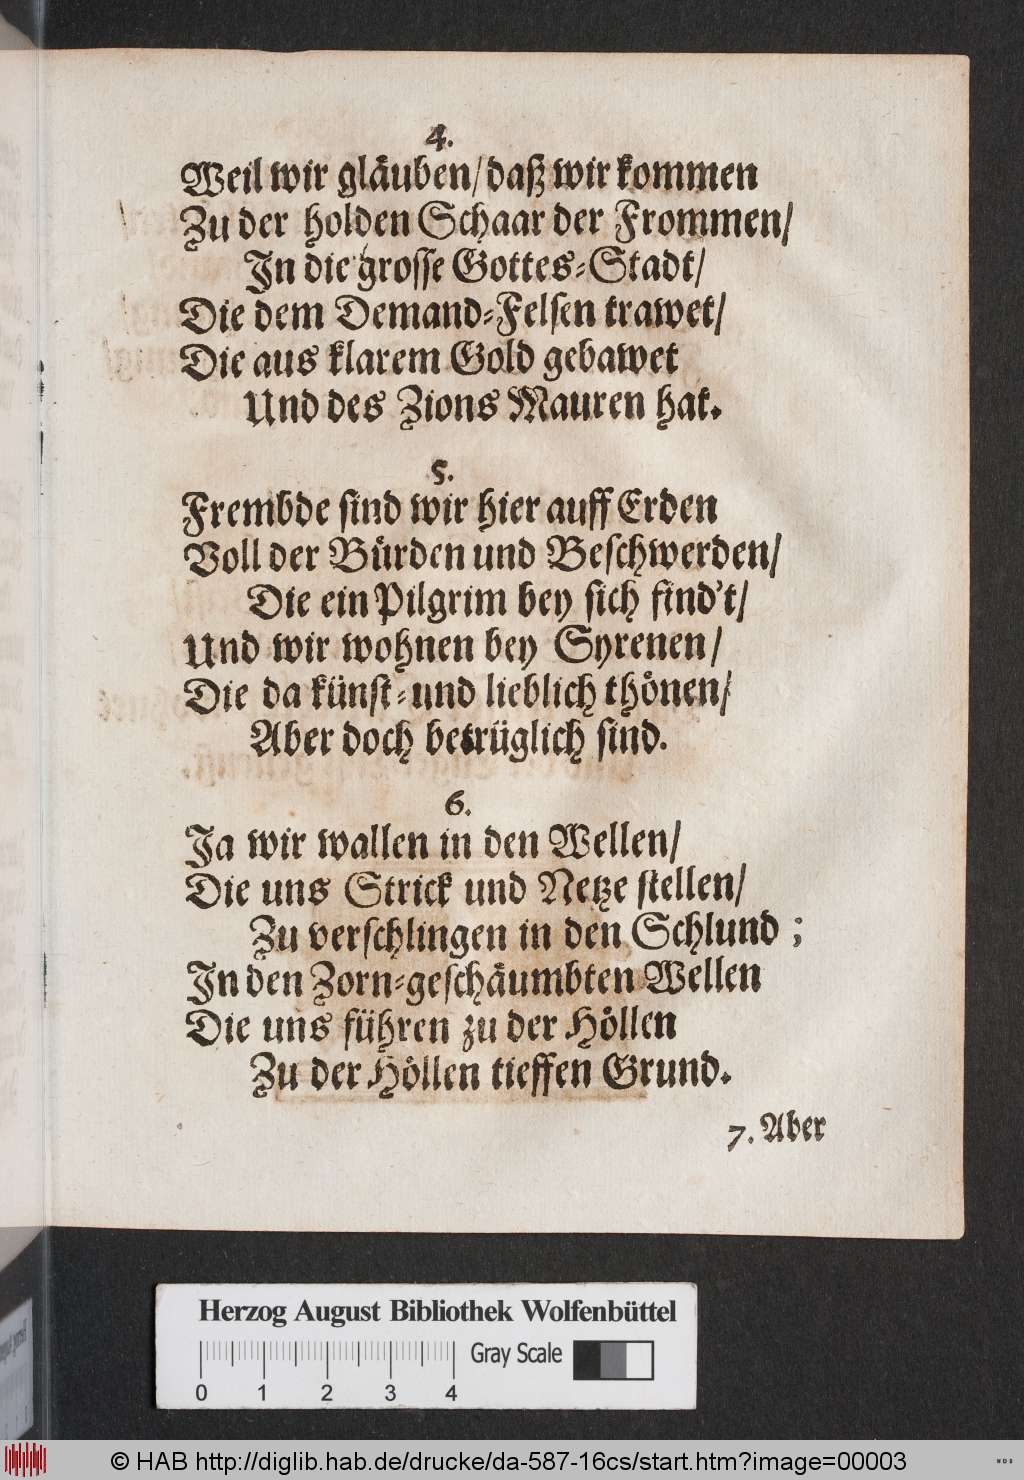 4.
Weil wir gläuben/ daß wir kommen
Zu der holden Schaar der Frommen/
In die grosse Gottes-Stadt/
Die dem Demand-Felsen trawet/
Die aus klarem Gold gebawet
Und des Zions Mauren hat.
5.
Frembde sind wir hier auff Erden
Voll der Bürden und Beschwerden/
Die ein Pilgrim bey sich find't/
Und wir wohnen bey Syrenen/
Die da künst- und lieblich thönen/
Aber doch betrüglich sind.
6.
Ja wir wallen in den Wellen/
Die uns Strick und Netze stellen/
Zu verschlingen in den Schlund;
In den Zorn-geschäumbten Wellen
Die uns führen zu der Höllen
Zu der Höllen tieffen Grund.
7. Aber
Herzog August Bibliothek Wolfenbüttel
Gray Scale
0 1 2 3 4
© HAB http://diglib.hab.de/drucke/da-587-16cs/start.htm?image=00003